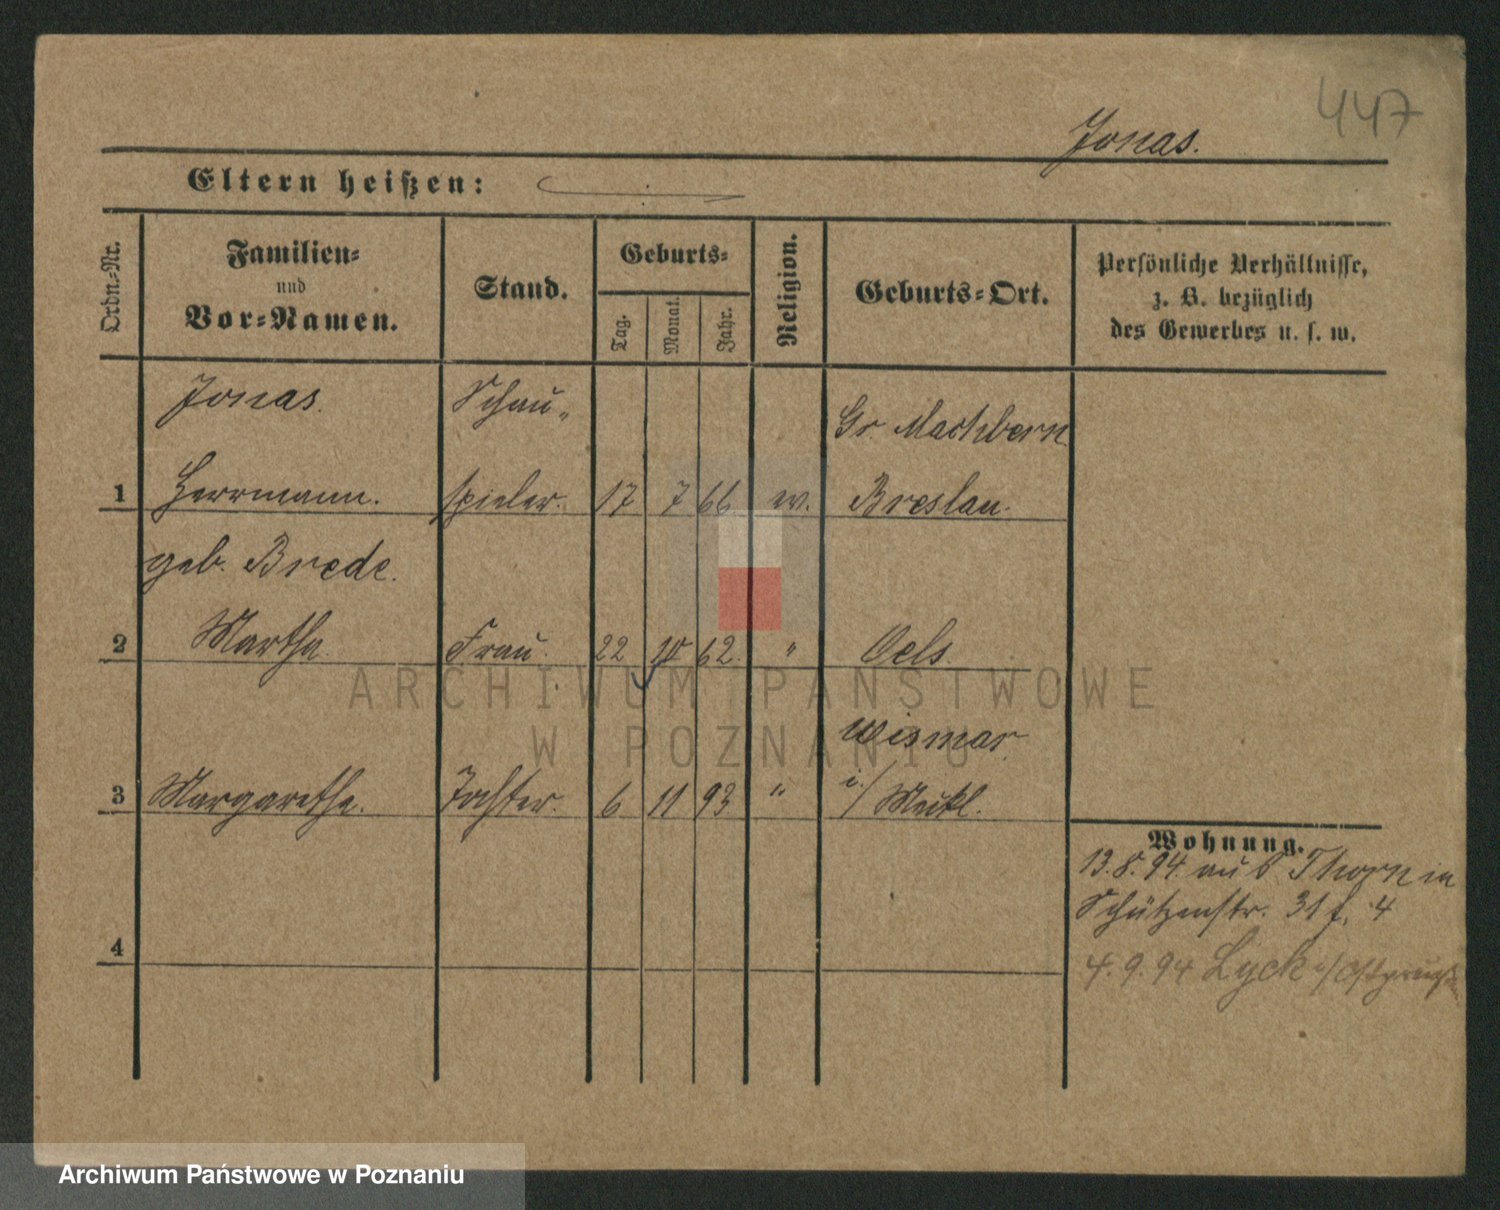 447
Jonas.
Eltern heißen:
Ordn.-Nr.
Familien-
und
Vor-Namen.
Stand.
Geburts-
Tag.
Monat.
Jahr.
Religion.
Geburts-Ort.
Persönliche Verhältnisse,
z. B. bezüglich
des Gewerbes u. s. w.
Jonas. Schau- Gr. Mochbern
1 Herrmann. spieler. 17 7 66 ev. Breslau.
geb. Brede.
2 Martha Frau. 22 10 62. " Oels.
Wismar
3 Margarethe. Tochter. 6 11 93 " i./ Meckl.
4
Wohnung.
13.8.94. aus Thorn in
Schützenstr. 31 f. 4
4.9.94 Lyck i/Ostpreuß.
ARCHIWUM PAŃSTWOWE
W POZNANIU
Archiwum Państwowe w Poznaniu